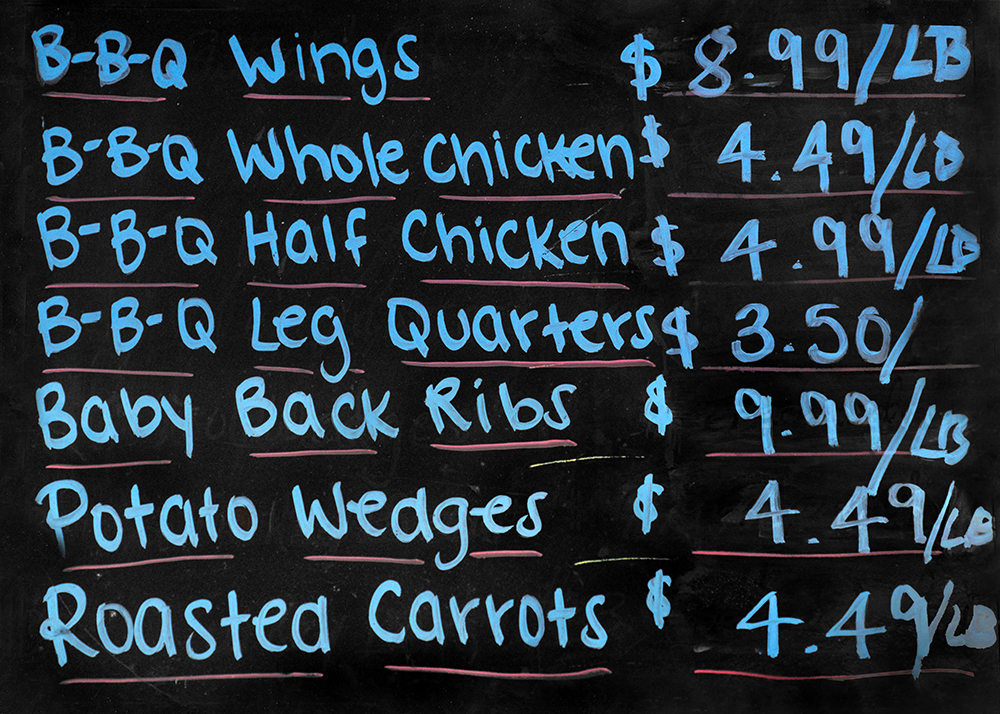 B-B-Q Wings $ 8.99/LB
B-B-Q Whole Chicken $ 4.49/LB
B-B-Q Half Chicken $ 4.99/LB
B-B-Q Leg Quarters $ 3.50/
Baby Back Ribs $ 9.99/LB
Potato Wedges $ 4.49/LB
Roasted Carrots $ 4.49/LB